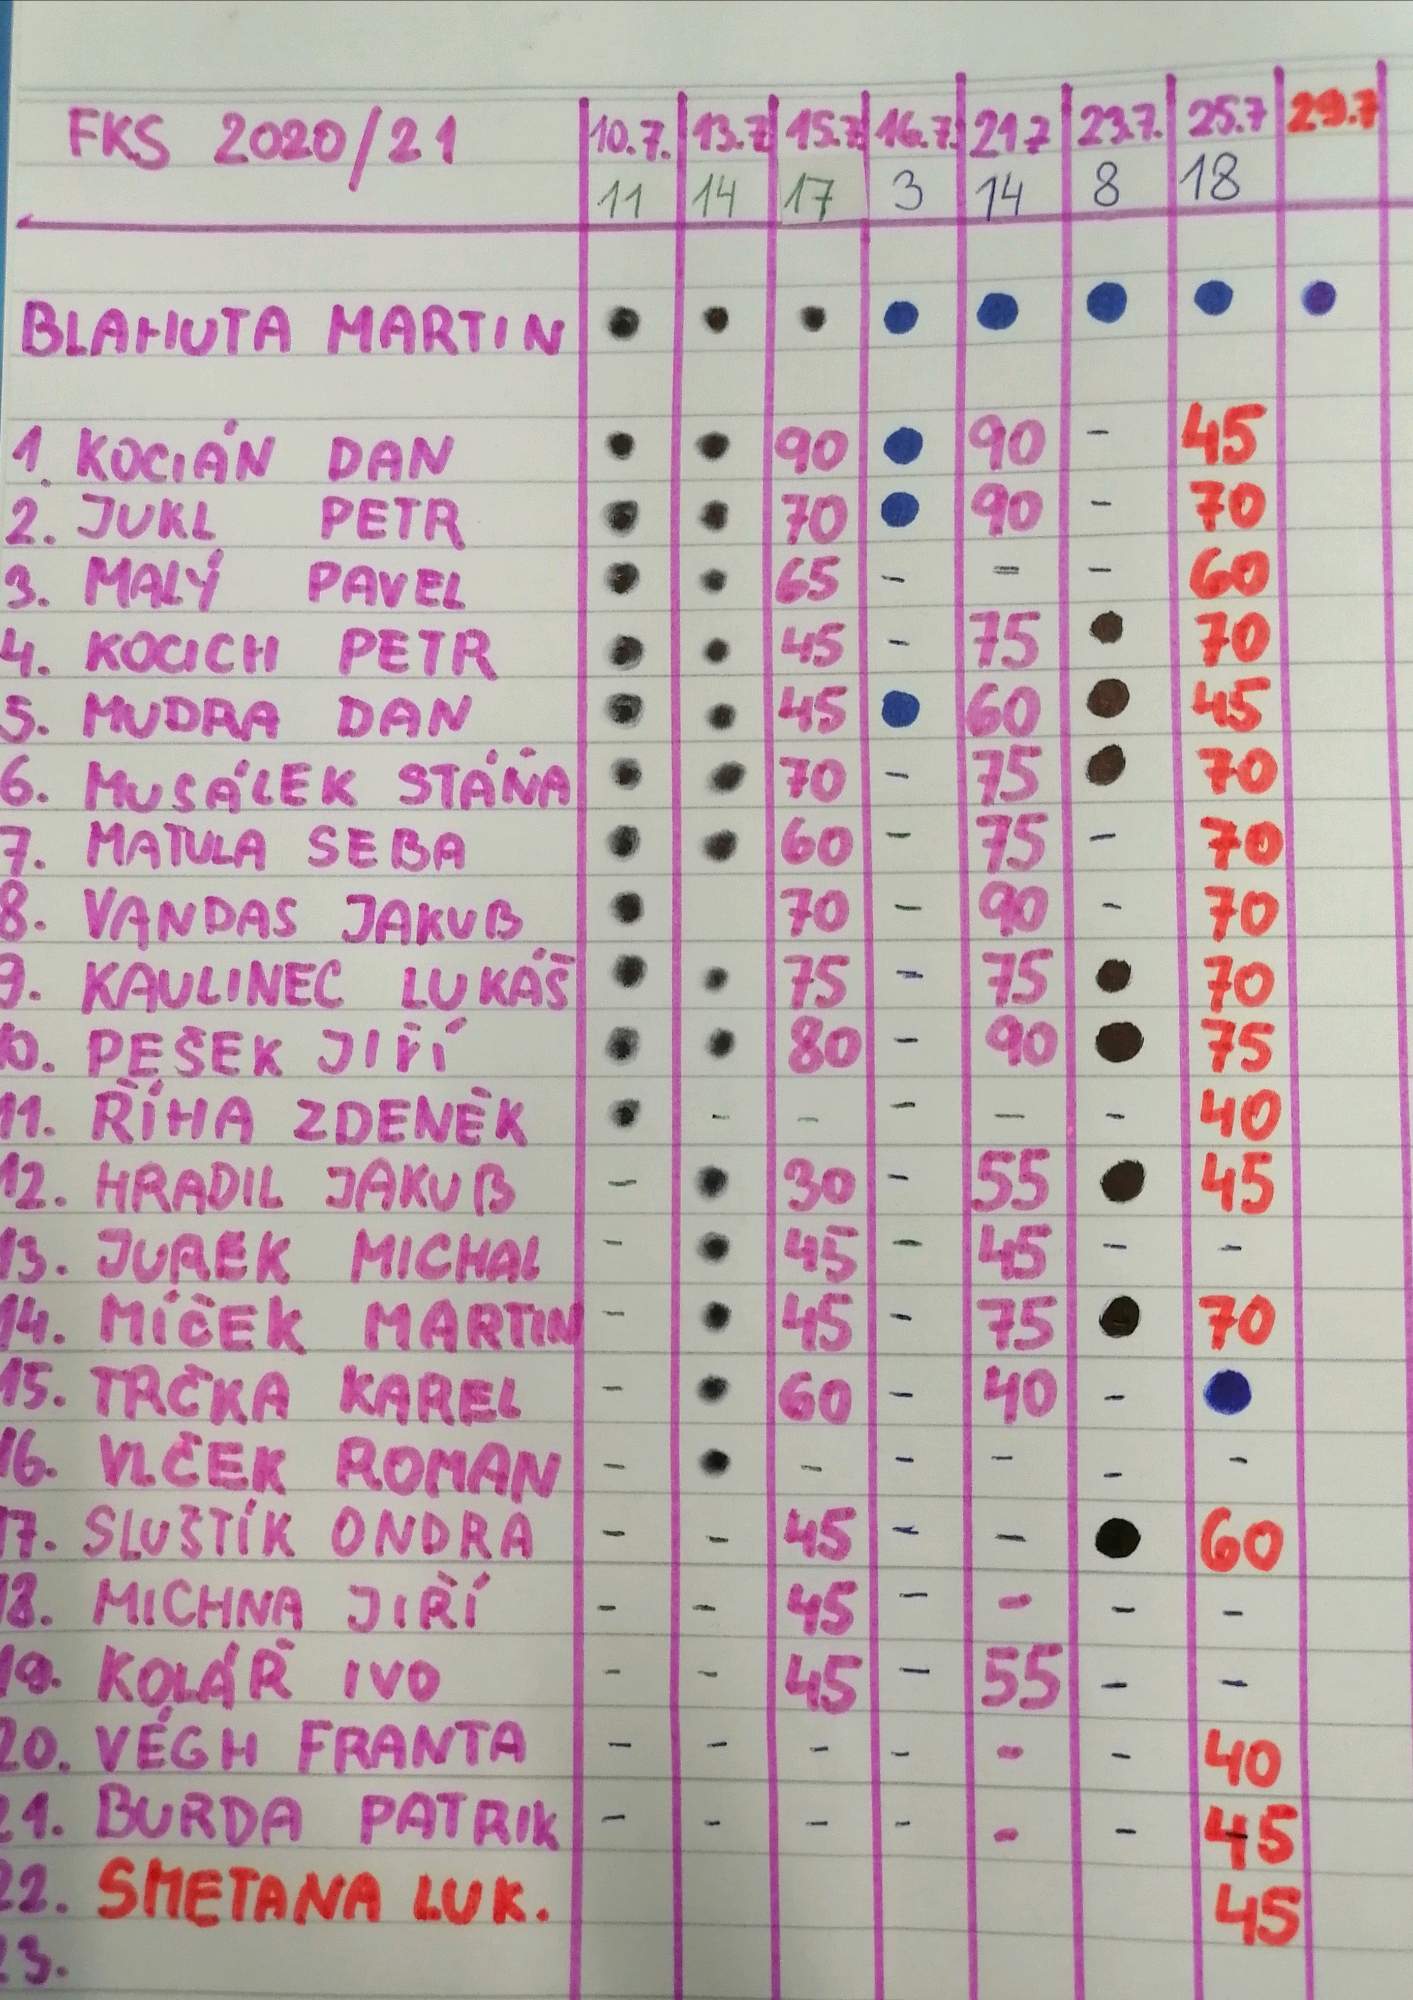 FKS 2020/21 10.7. 13.7 15.7 16.7. 21.7 23.7. 25.7 29.7
11 14 17 3 14 8 18
BLAHUTA MARTIN ● ● ● ● ● ● ● ●
1. KOCIÁN DAN ● ● 90 ● 90 - 45
2. JUKL PETR ● ● 70 ● 90 - 70
3. MALÝ PAVEL ● ● 65 - = - 60
4. KOCICH PETR ● ● 45 - 75 ● 70
5. MUDRA DAN ● ● 45 ● 60 ● 45
6. MUSÁLEK STÁŇA ● ● 70 - 75 ● 70
7. MATULA SEBA ● ● 60 - 75 - 70
8. VANDAS JAKUB ● 70 - 90 - 70
9. KAULINEC LUKÁŠ ● ● 75 - 75 ● 70
10. PEŠEK JIŘÍ ● ● 80 - 90 ● 75
11. ŘÍHA ZDENĚK ● - - - - - 40
12. HRADIL JAKUB - ● 30 - 55 ● 45
13. JUREK MICHAL - ● 45 - 45 - -
14. MÍČEK MARTIN - ● 45 - 75 ● 70
15. TRČKA KAREL - ● 60 - 40 - ●
16. VLČEK ROMAN - ● - - - - -
17. SLUŠTÍK ONDRA - - 45 - - ● 60
18. MICHNA JIŘÍ - - 45 - - - -
19. KOLÁŘ IVO - - 45 - 55 - -
20. VÉGH FRANTA - - - - - - 40
21. BURDA PATRIK - - - - - - 45
22. SMETANA LUK. 45
23.